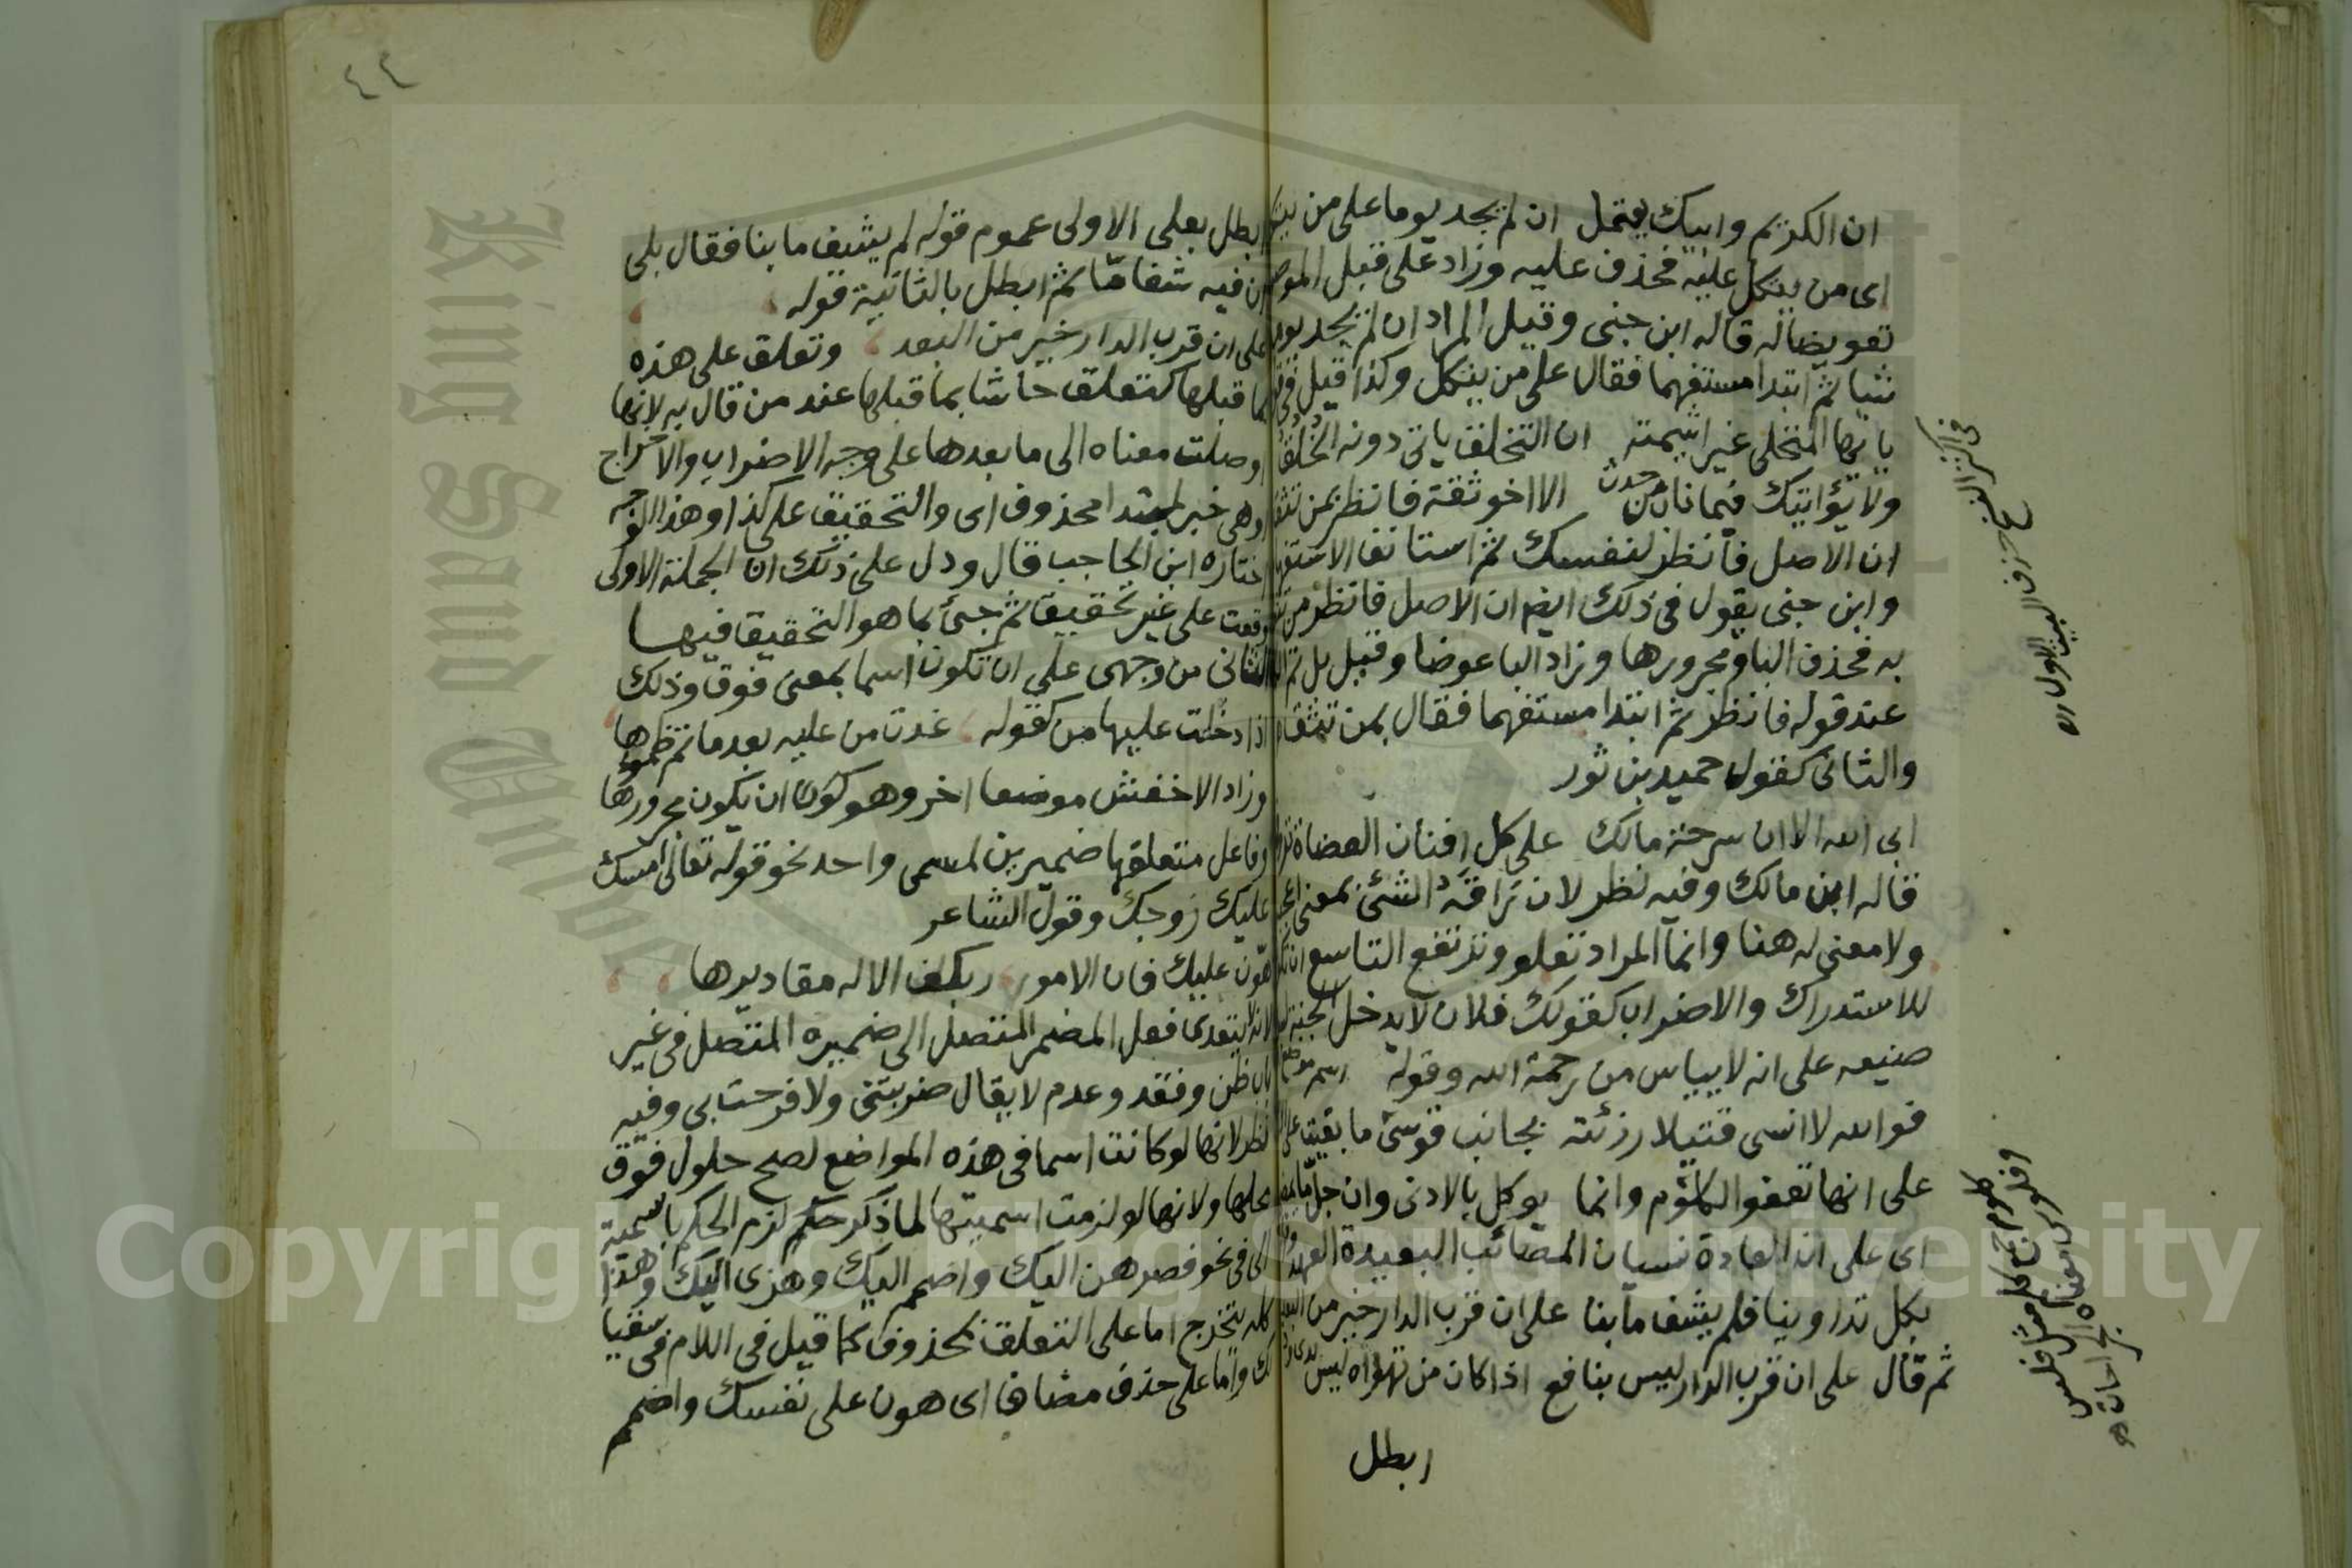 ان الكريم وابيك يعتمل ان لم يجد يوما على من يتكل
اى من يتكل عليه فحذف عليه وزاد على قبل الموصول
تعويضا له قاله ابن جنى وقيل المراد ان لم يجد يوما
شيا ثم ابتدا مستفهما فقال على من يتكل وكذا قيل فى قوله
يا ايها المتحلى غير شيمته ان التخلق ياتى دونه الخلق
ولا يؤاتيك فيما ناب من حدث الا اخو ثقة فانظر بمن تثق
ان الاصل فانظر لنفسك ثم استانف الاستفهام
وابن جنى يقول فى ذلك ايضا ان الاصل فانظر من تثق
به فحذف البا ومجرورها وزاد البا عوضا وقيل بل تم الكلام
عند قوله فانظر ثم ابتدا مستفهما فقال بمن تثق
والثانى كقول حميد بن ثور
ابى الله الا ان سرحة مالك على كل افنان العضاة تروق
قاله ابن مالك وفيه نظر لان راقه الشئ بمعنى اعجبه
ولا معنى له هنا وانما المراد تعلو وترتفع التاسع ان تكون
للاستدراك والاضراب كقولك فلان لا يدخل الجنة لسوء
صنيعه على انه لا ييأس من رحمة الله وقوله اسم موضع
فوالله لا انسى قتيلا رزئته بجانب قوسى ما بقيت على الارض
على انها تعفو الكلوم وانما يوكل بالادنى وان جل ما يمضى
اى على ان العادة نسيان المصائب البعيدة العهد وقوله
بكل تداوينا فلم يشف ما بنا على ان قرب الدار خير من البعد
ثم قال على ان قرب الدار ليس بنافع اذا كان من تهواه ليس بذى ود
ابطل
فى البيت الاول اه
كلوم جمع كلم مثل فلس
وفلوس ومعناه الجراحات اه
٤٤
ابطل بعلى الاولى عموم قوله لم يشف ما بنا فقال بلى
ان فيه شفا مّا ثم ابطل بالثانية قوله
على ان قرب الدار خير من البعد وتعلق على هذه
بما قبلها كتعلق حاشا بما قبلها عند من قال به لانها
اوصلت معناه الى ما بعدها على وجه الاضراب والاخراج
اوهى خبر لمبتدا محذوف اى والتحقيق على كذا وهذا الوجه
اختاره ابن الحاجب قال ودل على ذلك ان الجملة الاولى
وقعت على غير تحقيق ثم جئ بما هو التحقيق فيها
الثانى من وجهى على ان تكون اسما بمعنى فوق وذلك
اذا دخلت عليها من كقوله غدت من عليه بعد ما تم ظموها
وزاد الاخفش موضعا اخر وهو كون ان يكون مجرورها
وفاعل متعلقها ضميرين لمسمى واحد نحو قوله تعالى امسك
عليك زوجك وقول الشاعر
هون عليك فان الامور بكف الاله مقاديرها
لانه لا يتعدى فعل المضمر المتصل الى ضميره المتصل فى غير
باب ظن وفقد وعدم لا يقال ضربتنى ولا فرحت بى وفيه
نظر لانها لو كانت اسما فى هذه المواضع لصح حلول فوق
محلها ولانها لو لزمت اسميتها لما ذكر حكم لزم الحكم باسمية
الى فى نحو فصرهن اليك واضمم اليك وهزى اليك وهذا
كله يتخرج اما على التعلق بمحذوف كما قيل فى اللام فى سقيا
لك واما على حذف مضاف اى هون على نفسك واضمم